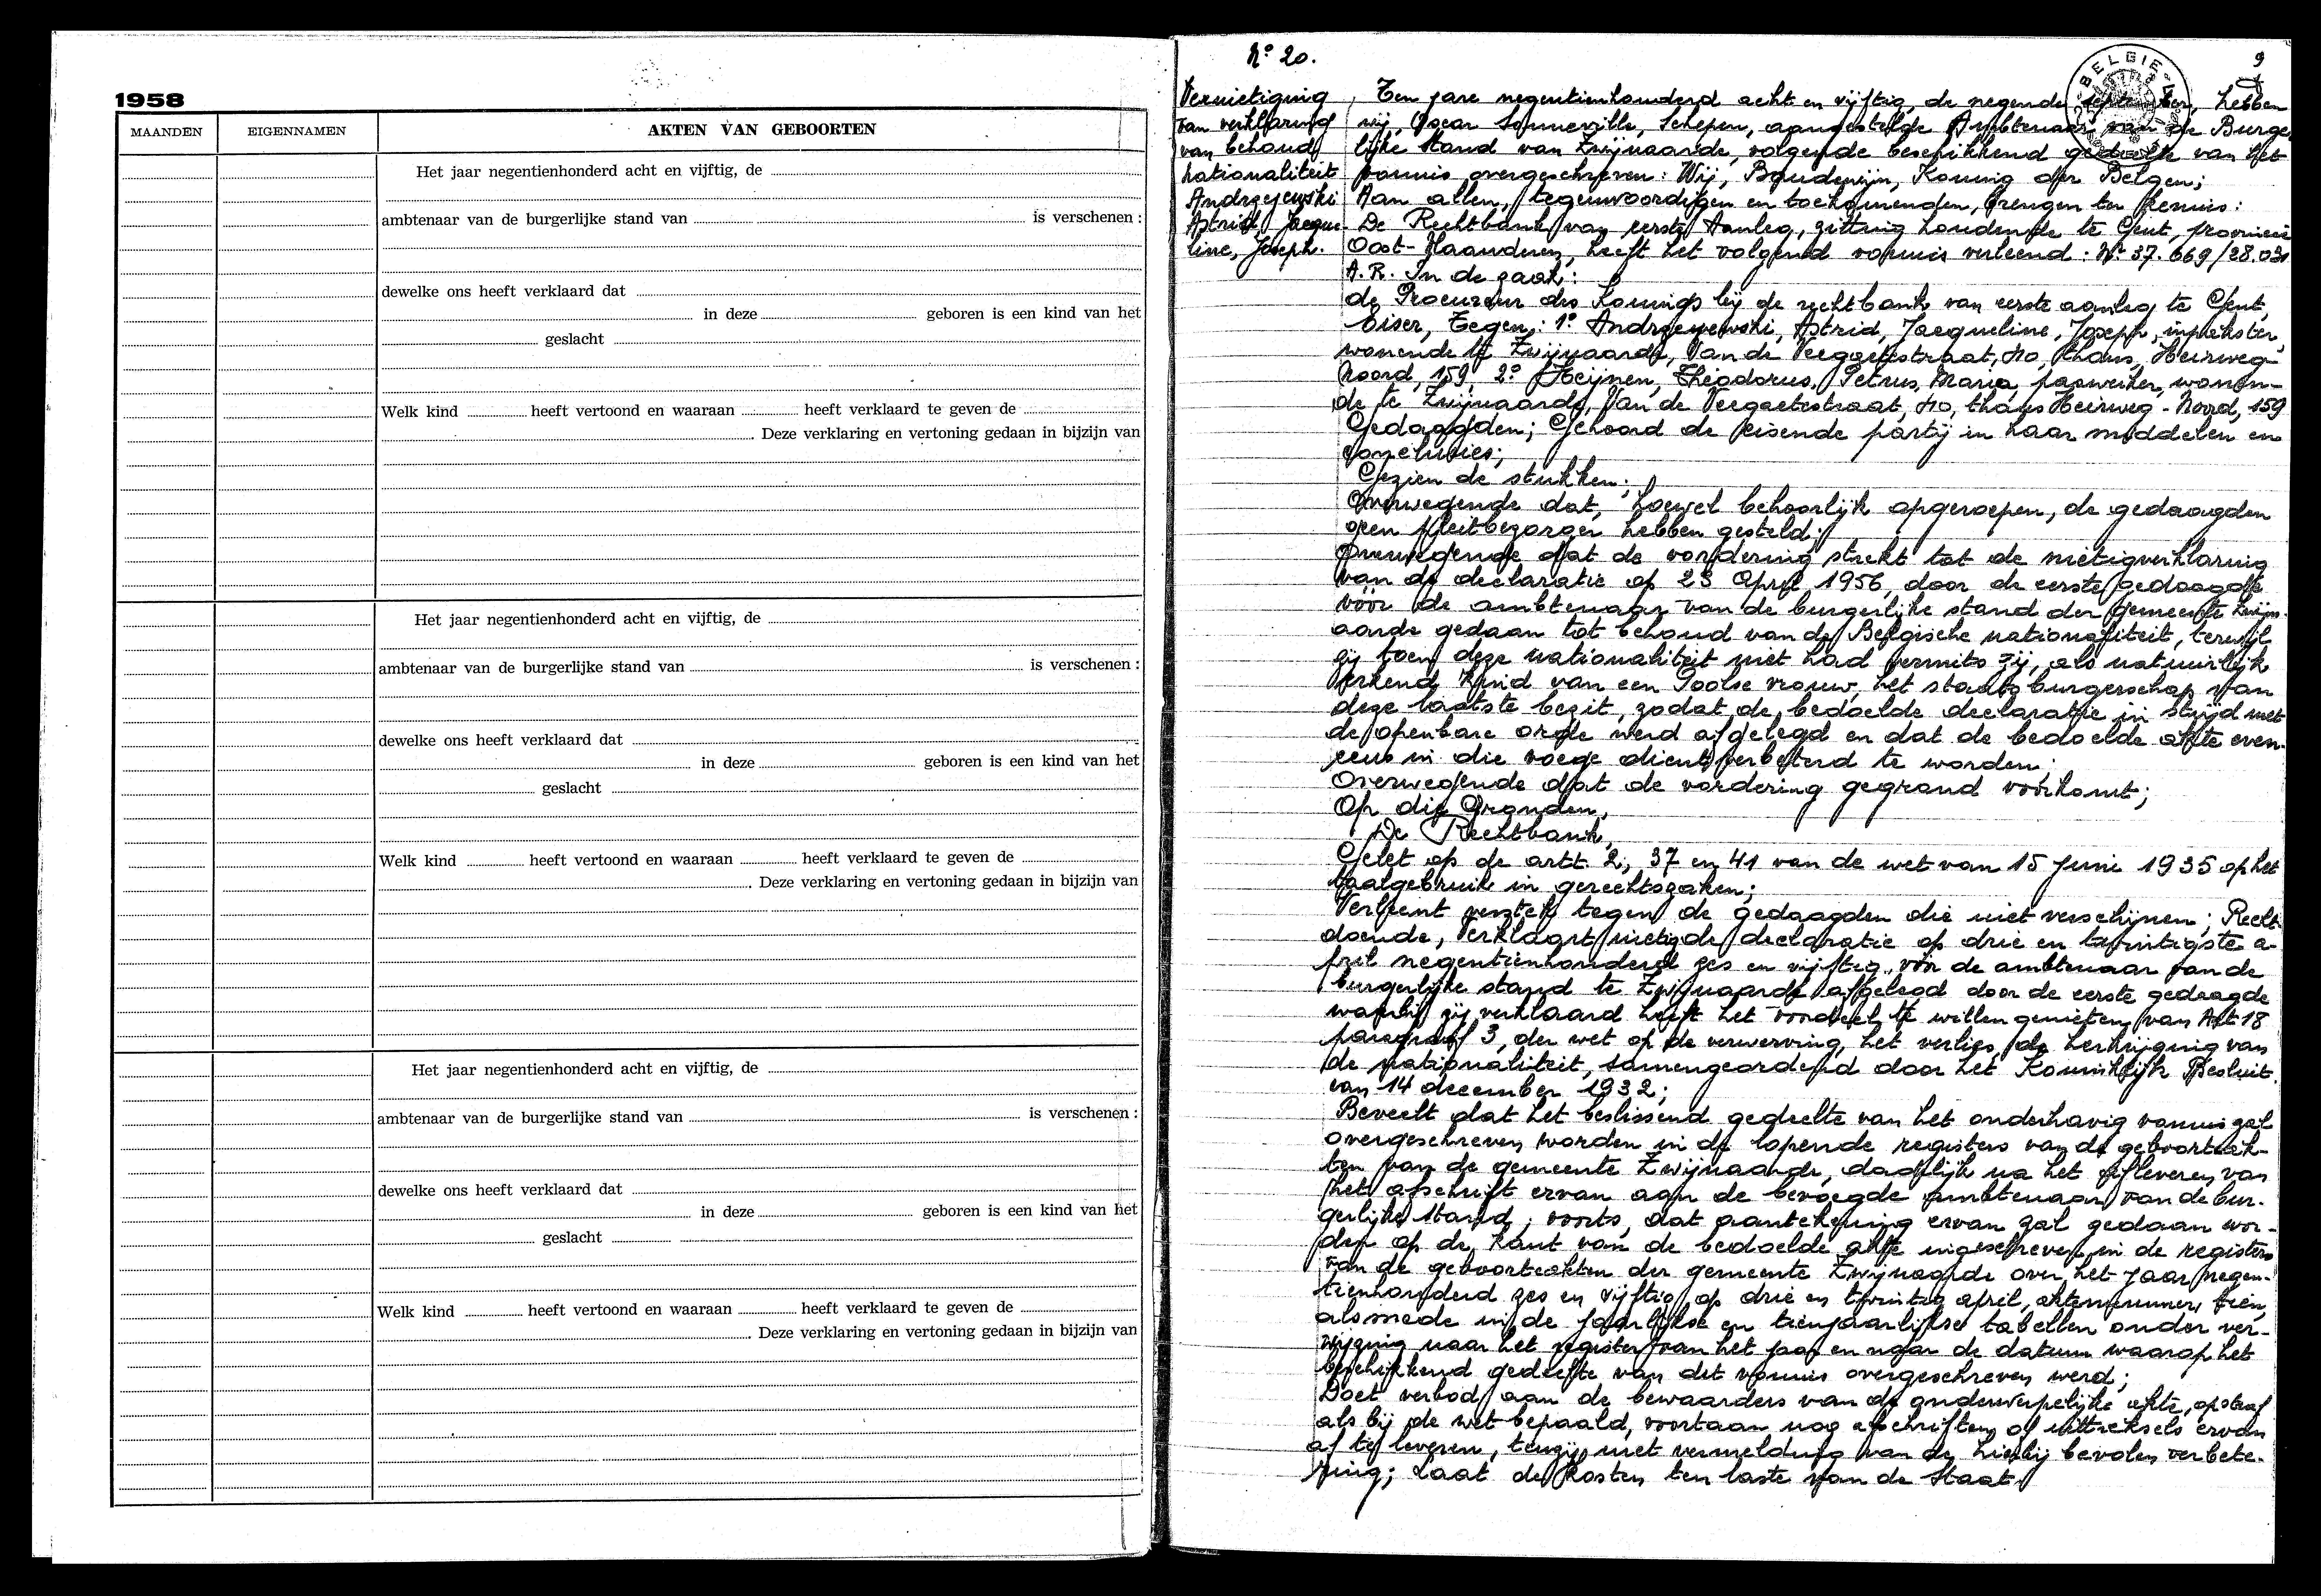 1958
MAANDEN EIGENNAMEN AKTEN VAN GEBOORTEN
Het jaar negentienhonderd acht en vijftig, de
ambtenaar van de burgerlijke stand van is verschenen :
dewelke ons heeft verklaard dat
in deze geboren is een kind van het
geslacht
Welk kind heeft vertoond en waaraan heeft verklaard te geven de
Deze verklaring en vertoning gedaan in bijzijn van
Het jaar negentienhonderd acht en vijftig, de
ambtenaar van de burgerlijke stand van is verschenen :
dewelke ons heeft verklaard dat
in deze geboren is een kind van het
geslacht
Welk kind heeft vertoond en waaraan heeft verklaard te geven de
Deze verklaring en vertoning gedaan in bijzijn van
Het jaar negentienhonderd acht en vijftig, de
ambtenaar van de burgerlijke stand van is verschenen :
dewelke ons heeft verklaard dat
in deze geboren is een kind van het
geslacht
Welk kind heeft vertoond en waaraan heeft verklaard te geven de
Deze verklaring en vertoning gedaan in bijzijn van
N° 20.
9
BELGIE
Vernietiging
van verklaring
van behoud
nationaliteit
Andrzejewski
Astrid, Jacque-
line, Joseph.
Ten jare negentienhonderd acht en vijftig, de negende september, hebben
wij, Oscar Sonneville, Schepen, aangestelde Ambtenaar van de Burger
lijke Stand van Zwijnaarde, volgende beschikkend gedeelte van het
vonnis overgeschreven : Wij, Boudewijn, Koning der Belgen;
Aan allen, tegenwoordigen en toekomenden, brengen ter kennis :
De Rechtbank van eerste Aanleg, zitting houdende te Gent, provincie
Oost-Vlaanderen, heeft het volgend vonnis verleend : N° 37.669/28.031
A.R. In de zaak :
de Procureur des Konings bij de rechtbank van eerste aanleg te Gent,
Eiser, Tegen : 1° Andrzeyewski, Astrid, Jacqueline, Joseph, inpakster,
wonende te Zwijnaarde, Van de Veegaetestraat, 40, thans, Heirweg
Noord, 159, 2° Heijnen, Théodorus, Petrus, Maria, paswerker, wonen-
de te Zwijnaarde, Van de Veegaetestraat, 40, thans Heirweg - Noord, 159
Gedaagden; Gehoord de eisende partij in haar middelen en
conclusies;
Gezien de stukken;
Overwegende dat, hoewel behoorlijk opgeroepen, de gedaagden
geen pleitbezorger hebben gesteld;
Overwegende dat de vordering strekt tot de nietigverklaring
van de declaratie op 23 April 1956, door de eerste gedaagde
vóór de ambtenaar van de burgerlijke stand der gemeente Zwijn-
aarde gedaan tot behoud van de Belgische nationaliteit, terwijl
zij toen deze nationaliteit niet had vermits zij, als natuurlijk
erkend kind van een Poolse vrouw, het staatsburgerschap van
deze laatste bezit, zodat de bedoelde declaratie in strijd met
de openbare orde werd afgelegd en dat de bedoelde akte even-
eens in die voege dient verbeterd te worden;
Overwegende dat de vordering gegrond voorkomt;
Op die Gronden,
De Rechtbank,
Gelet op de artt. 2, 37 en 41 van de wet van 15 Juni 1935 op het
taalgebruik in gerechtszaken;
Verleent verstek tegen de gedaagden die niet verschijnen; Recht-
doende, Verklaart nietig de declaratie op drie en twintigste a-
pril negentienhonderd zes en vijftig vóór de ambtenaar van de
burgerlijke stand te Zwijnaarde afgelegd door de eerste gedaagde
waarbij zij verklaard heeft het voordeel te willen genieten van Art 18
paragraaf 3, der wet op de verwerving, het verlies, de herkrijging van
de nationaliteit, samengeordend door het Koninklijk Besluit
van 14 december 1932;
Beveelt dat het beslissend gedeelte van het onderhavig vonnis zal
overgeschreven worden in de lopende registers van de geboorteak-
ten van de gemeente Zwijnaarde, dadelijk na het afleveren van
het afschrift ervan aan de bevoegde ambtenaar van de bur-
gerlijke stand; voorts, dat aantekening ervan zal gedaan wor-
den op de kant van de bedoelde akte ingeschreven in de registers
van de geboorteakten der gemeente Zwijnaarde over het jaar negen-
tienhonderd zes en vijftig op drie en twintig april, aktenummer tien,
alsmede in de jaarlijkse en tienjaarlijkse tabellen onder ver-
wijzing naar het register van het jaar en naar de datum waarop het
beschikkend gedeelte van dit vonnis overgeschreven werd;
Doet verbod aan de bewaarders van de onderwerpelijke akte, op straf
als bij de wet bepaald, voortaan nog afschriften of uittreksels ervan
af te leveren, tenzij met vermelding van de hierbij bevolen verbete-
ring; Laat de kosten ten laste van de Staat.